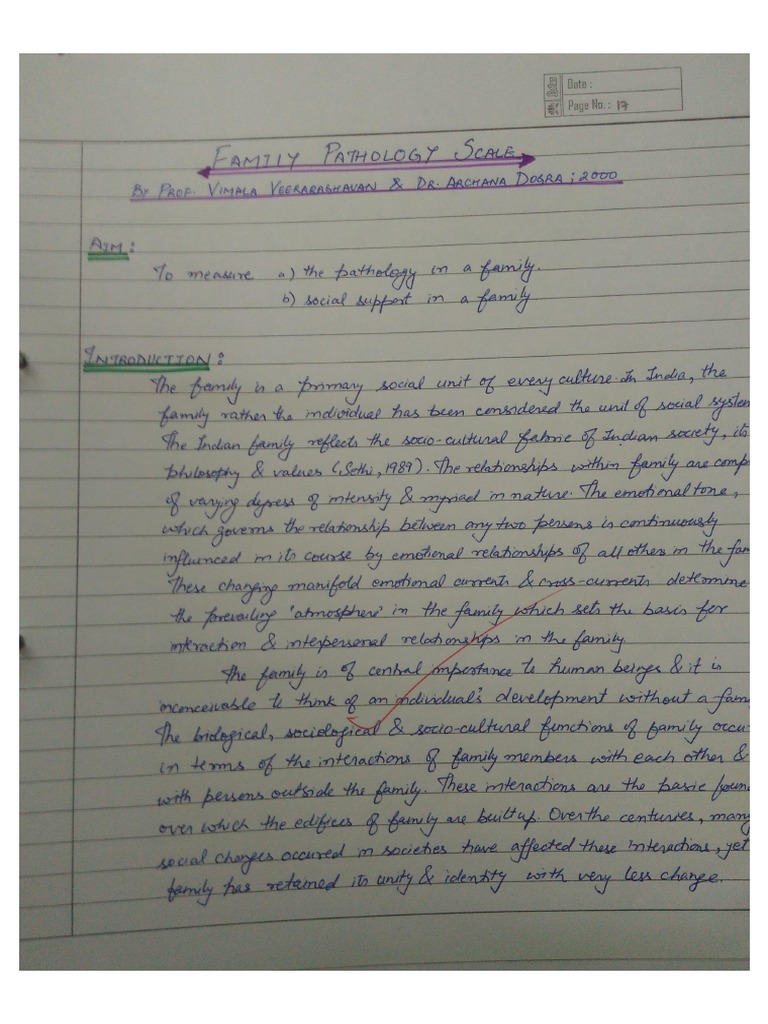 Date :
Page No. : 17
FAMILY PATHOLOGY SCALE
BY PROF. VIMALA VEERARAGHAVAN & DR. ARCHANA DOGRA ; 2000
AIM :
To measure a) the pathology in a family.
b) social support in a family
INTRODUCTION :
The family is a primary social unit of every culture. In India, the
family rather the individual has been considered the unit of social system
The Indian family reflects the socio-cultural fabric of Indian society, its
philosophy & values (Sethi, 1989). The relationships within family are comp
of varying dgress of intensity & myriad in nature. The emotional tone,
which governs the relationship between any two persons is continuously
influenced in its course by emotional relationships of all others in the fam
These changing manifold emotional currents & cross-currents determine
the prevailing 'atmosphere' in the family which sets the basis for
interaction & interpersonal relationships in the family
The family is of central importance to human beings & it is
inconceivable to think of an individual's development without a fam
The biological, sociological & socio-cultural functions of family occu
in terms of the interactions of family members with each other &
with persons outside the family. These interactions are the basic foun
over which the edifices of family are built up. Over the centuries, many
social changes occured in societies have affected these interactions, yet
family has retained its unity & identity with very less change.